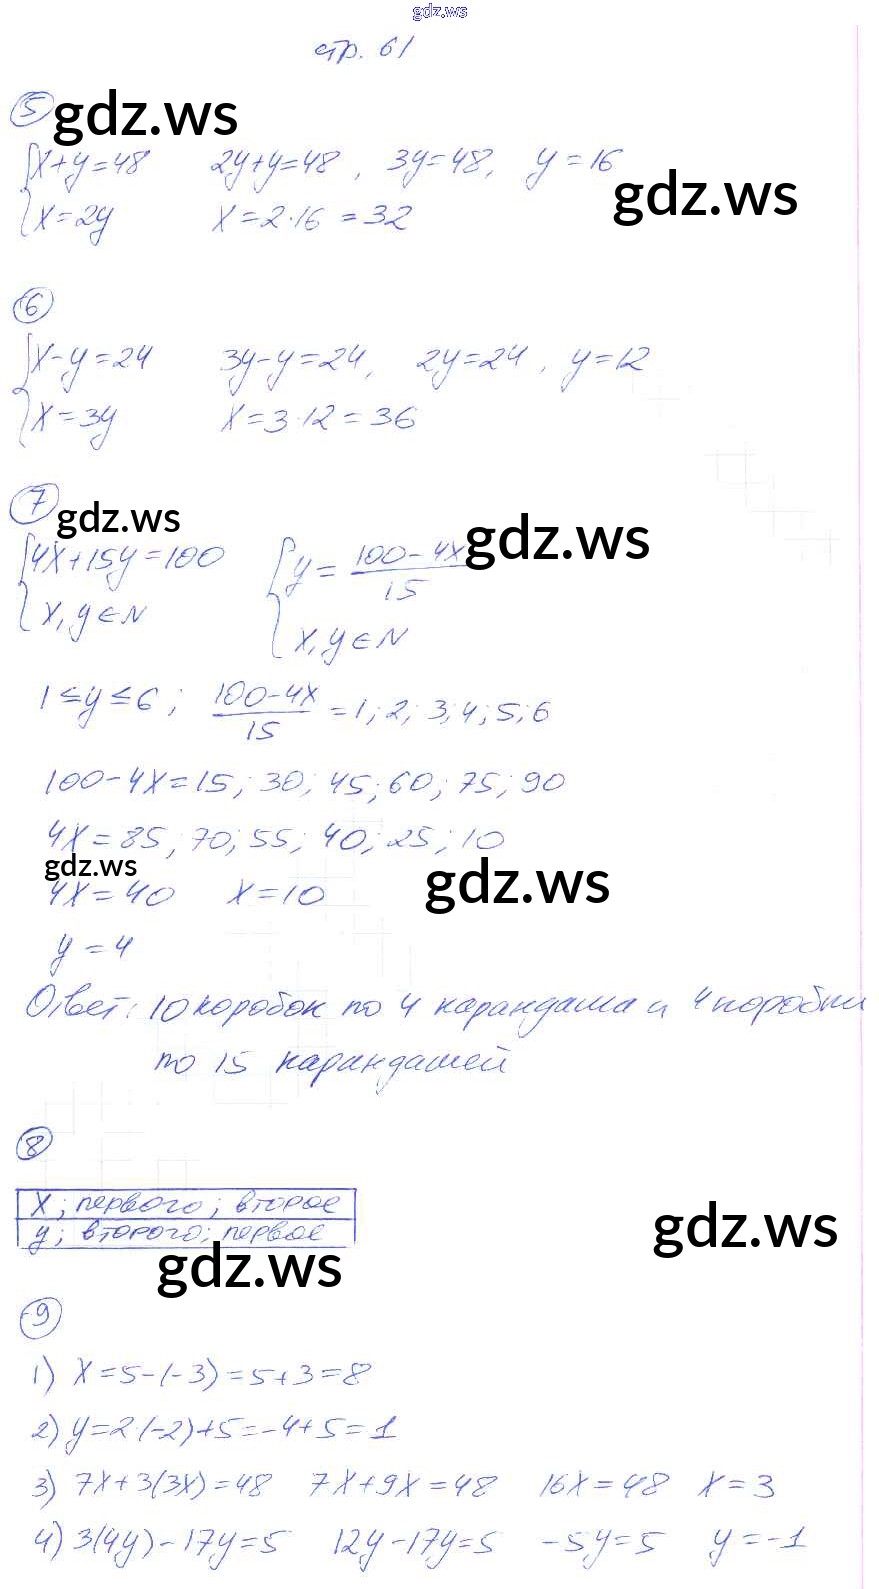 gdz.ws
стр. 61
5 gdz.ws
x+y=48 2y+y=48, 3y=48, y=16
gdz.ws
x=2y x=2·16=32
6
x-y=24 3y-y=24, 2y=24, y=12
x=3y x=3·12=36
7 gdz.ws
gdz.ws
4x+15y=100 y=100-4x/15
x,y∈N x,y∈N
1≤y≤6; 100-4x/15 =1; 2; 3; 4; 5; 6
100-4x=15; 30; 45; 60; 75; 90
4x=85; 70; 55; 40; 25; 10
gdz.ws
gdz.ws
4x=40 x=10
y=4
Ответ: 10 коробок по 4 карандаша и 4 коробки
по 15 карандашей
8
x; первого; второе
y; второго; первое
gdz.ws
gdz.ws
9
1) x=5-(-3)=5+3=8
2) y=2·(-2)+5=-4+5=1
3) 7x+3(3x)=48 7x+9x=48 16x=48 x=3
4) 3(4y)-17y=5 12y-17y=5 -5y=5 y=-1